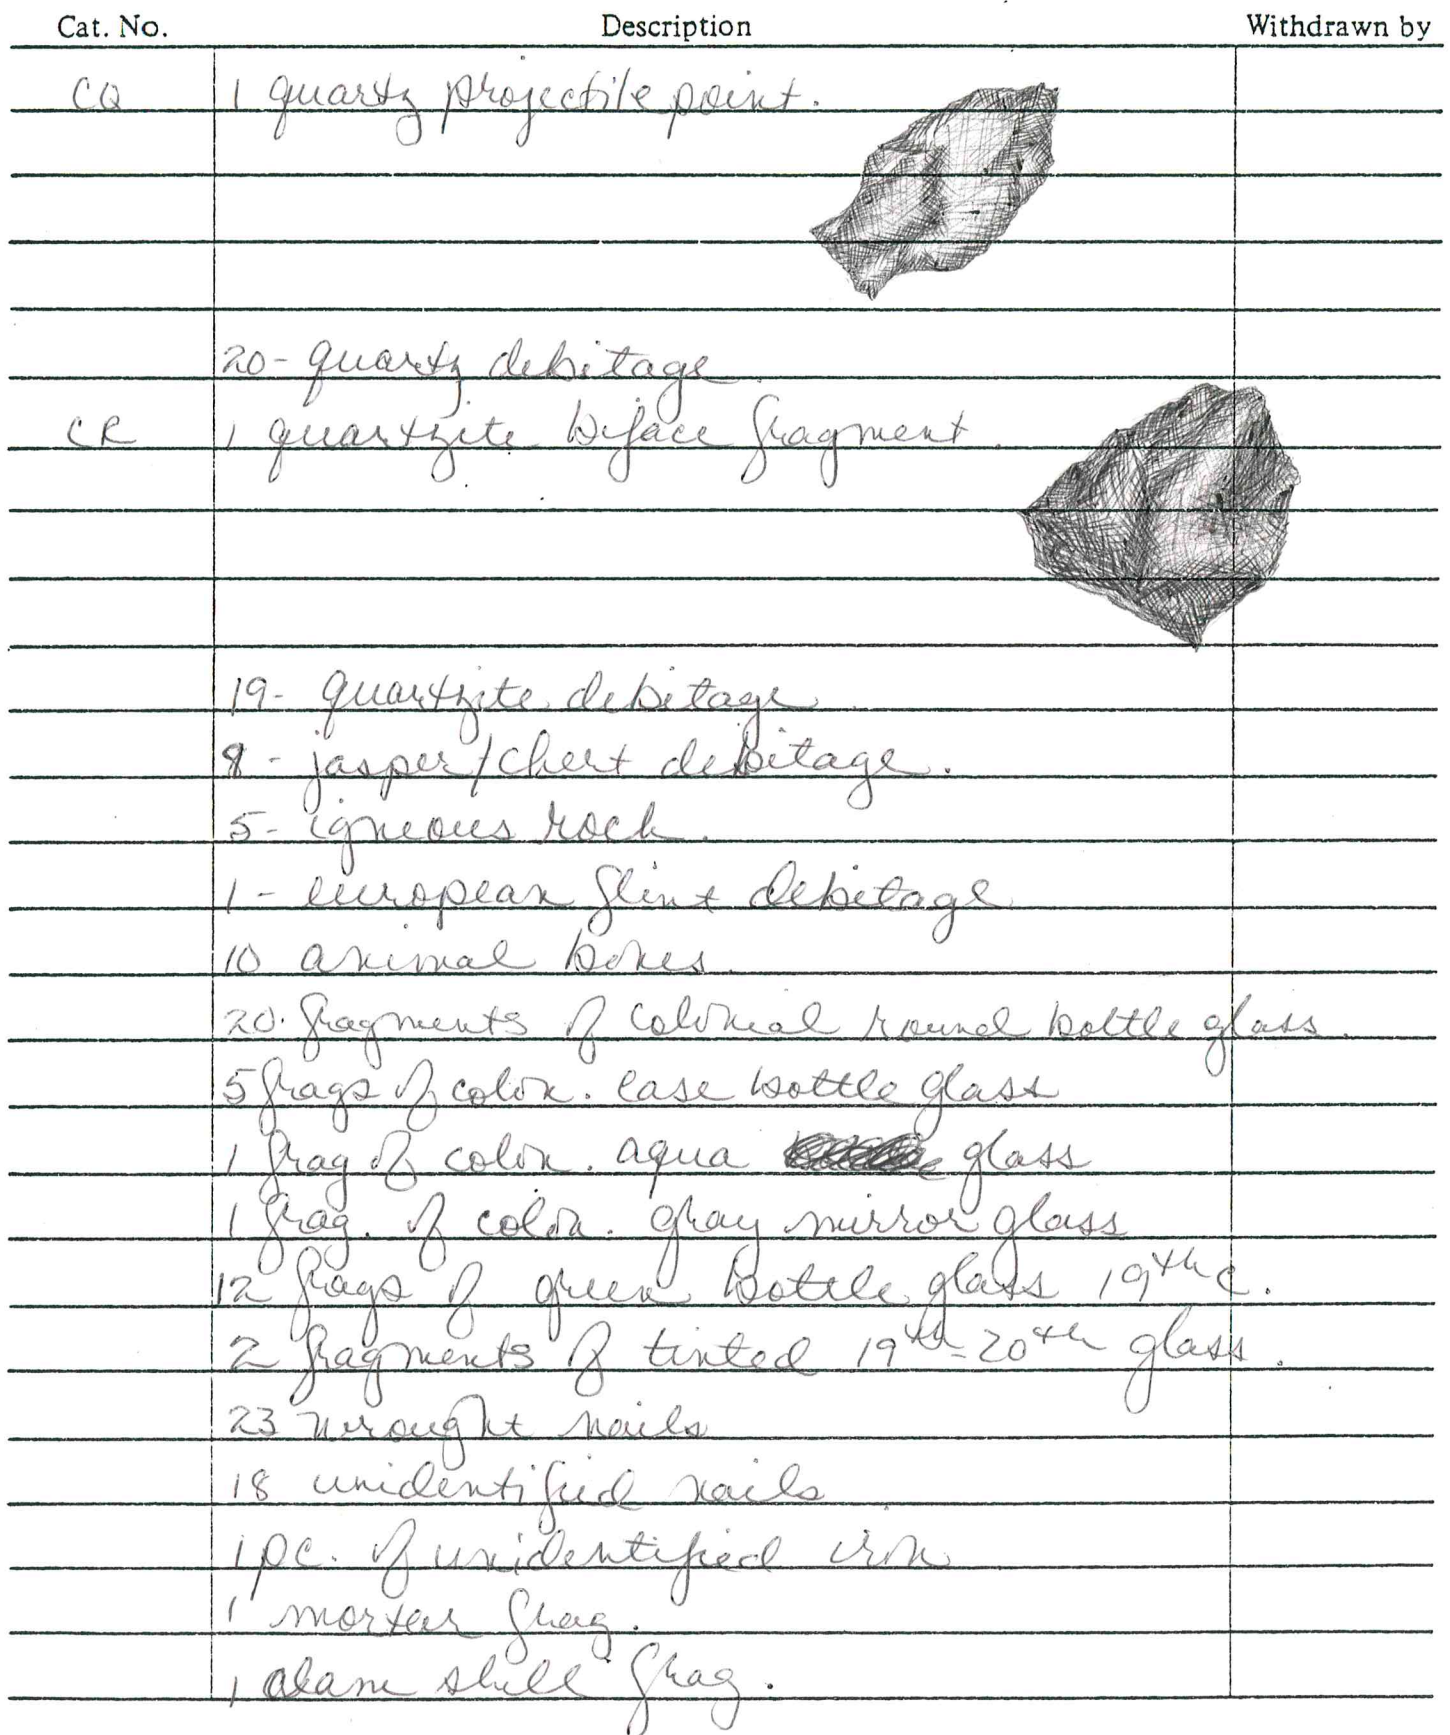 Cat. No. Description Withdrawn by
CQ 1 quartz projectile point.
20- quartz debitage.
CR 1 quartzite biface fragment.
19- quartzite debitage.
8- jasper/chert debitage.
5- igneous rock.
1- european flint debitage
10 animal bones.
20. fragments of colonial round bottle glass.
5 frags of colon. case bottle glass
1 frag of colon. aqua glass
1 frag. of colon. gray mirror glass
12 frags of green bottle glass 19th c.
2 fragments of tinted 19th-20th glass.
23 wrought nails
18 unidentified nails
1 pc. of unidentified iron
1 mortar frag.
1 clam shell frag.